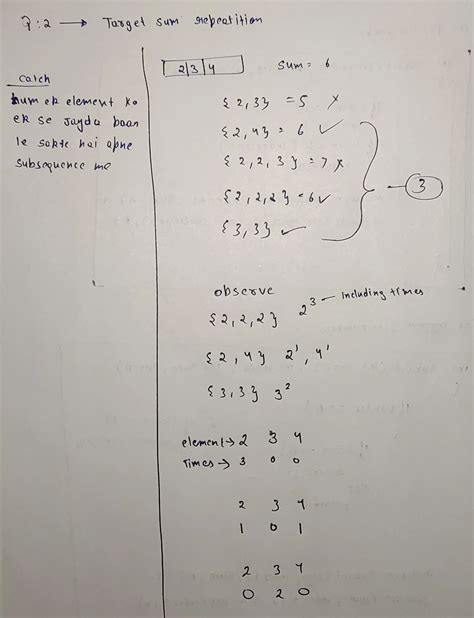 Q:2 → Target sum repeatition
catch
hum ek element ko
ek se jayda baar
le sakte hai apne
subsequence me
2|3|4 sum = 6
{2,3} = 5 ×
{2,4} = 6 ✓
{2,2,3} = 7 ×
{2,2,2} = 6 ✓
{3,3} ✓
3
observe
{2,2,2} 2³ — Including times
{2,4} 2¹, 4¹
{3,3} 3²
element → 2 3 4
Times → 3 0 0
2 3 4
1 0 1
2 3 4
0 2 0